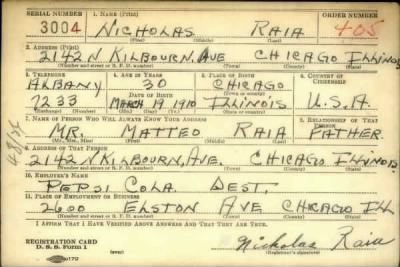 SERIAL NUMBER 1. NAME (Print) ORDER NUMBER
3004 NICHOLAS RAIA 405
(First) (Middle) (Last)
2. ADDRESS (Print)
2142 N KILBOURN, AVE CHICAGO ILLINOIS
(Number and street or R. F. D. number) (Town) (County) (State)
3. TELEPHONE 4. AGE IN YEARS 5. PLACE OF BIRTH 6. COUNTRY OF CITIZENSHIP
ALBANY 30 CHICAGO
DATE OF BIRTH
7233 MARCH 19 1910 ILLINOIS U.S.A.
(Exchange) (Number) (Mo.) (Day) (Yr.) (State or country)
7. NAME OF PERSON WHO WILL ALWAYS KNOW YOUR ADDRESS 8. RELATIONSHIP OF THAT PERSON
MR. MATTEO RAIA FATHER
(Mr., Mrs., Miss) (First) (Middle) (Last)
9. ADDRESS OF THAT PERSON
2142 N KILBOURN, AVE. CHICAGO ILLINOIS
(Number and street or R. F. D. number) (Town) (County) (State)
10. EMPLOYER'S NAME
PEPSI COLA. DEST.
11. PLACE OF EMPLOYMENT OR BUSINESS
2600 ELSTON AVE CHICAGO ILL
(Number and street or R. F. D. number) (Town) (County) (State)
I AFFIRM THAT I HAVE VERIFIED ABOVE ANSWERS AND THAT THEY ARE TRUE.
REGISTRATION CARD
D. S. S. Form 1
Nicholas Raia
(Registrant's signature)